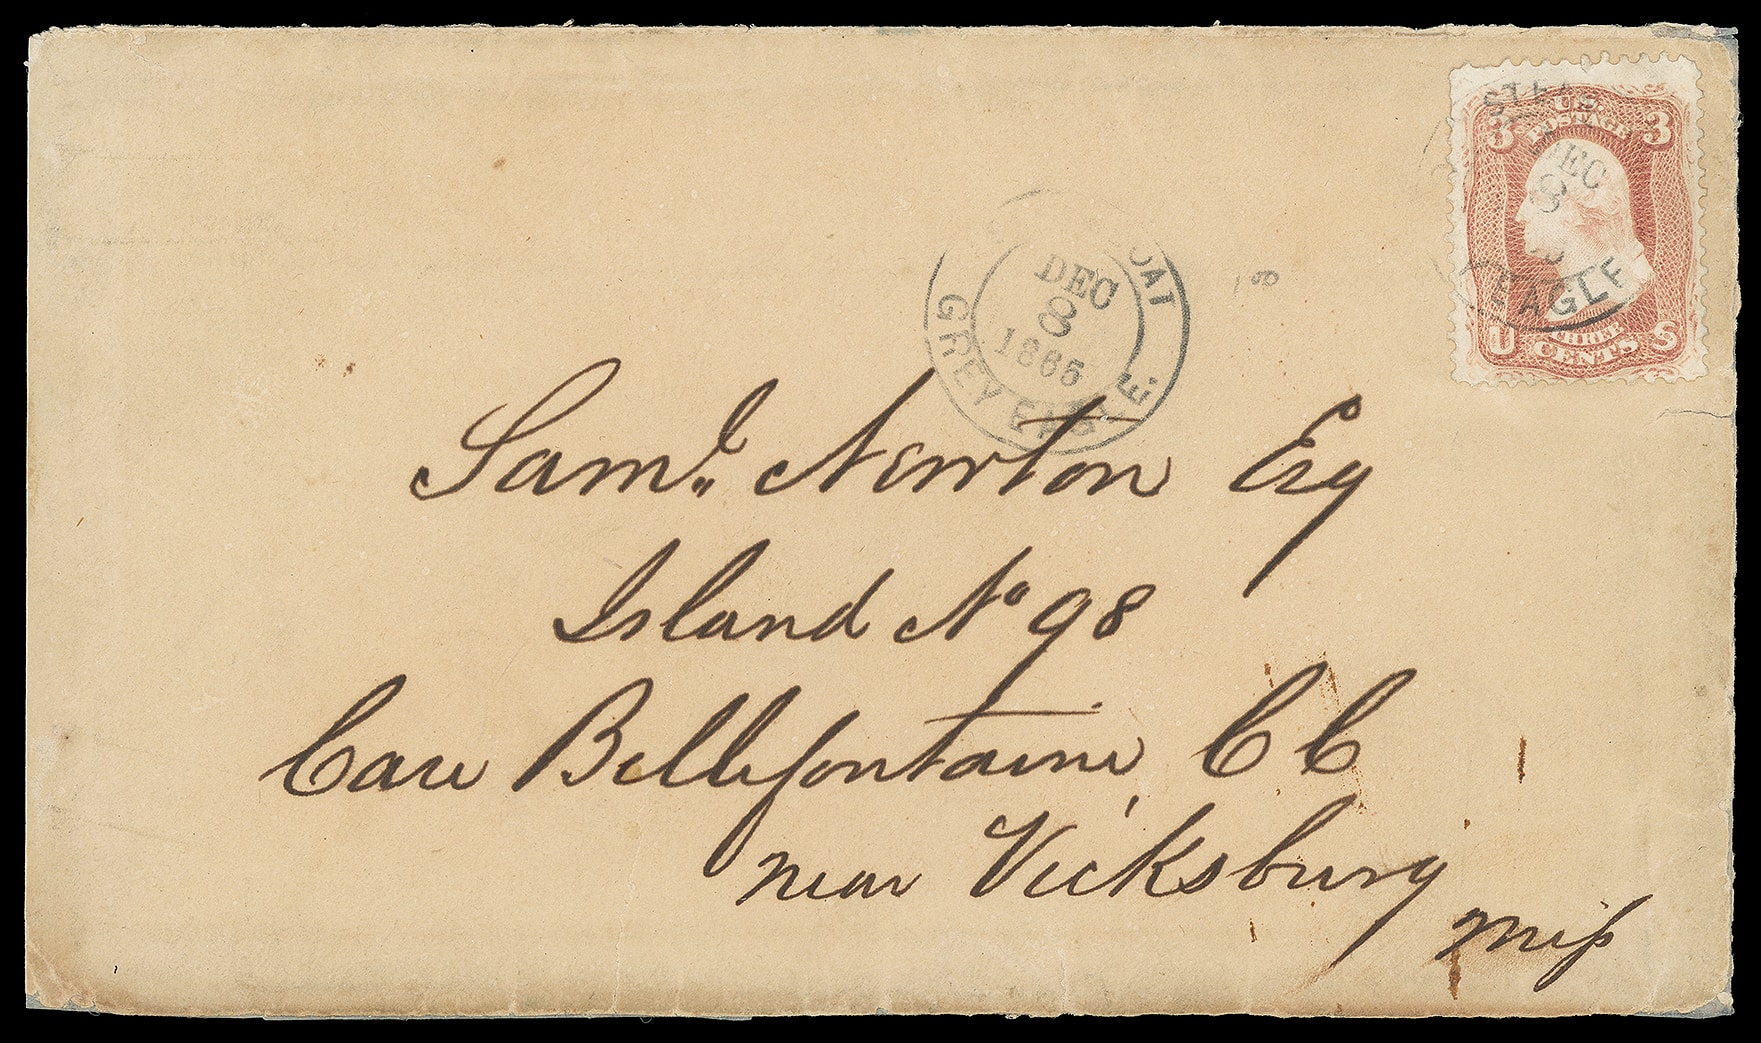 STEA
U.S.
POSTAGE
3 3
DEC
8
EAGLE
THREE
CENTS
U S
OAT
DEC
8
1865
GREY EAGLE.
100
Saml. Newton Esq
Island No 98
Care Bellefontaine, CC
near Vicksburg
Miss